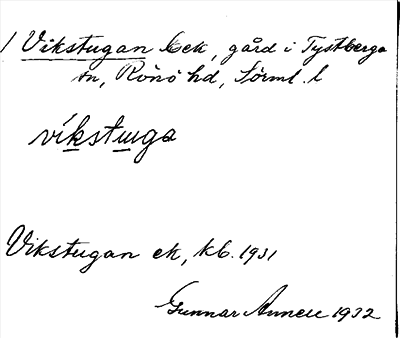 1 Vikstugan Eek, gård i Tystberga
sn, Rönö hd, Sörml. l
víkstuga
Vikstugan ek, kb. 1931
Gunnar Annell 1932